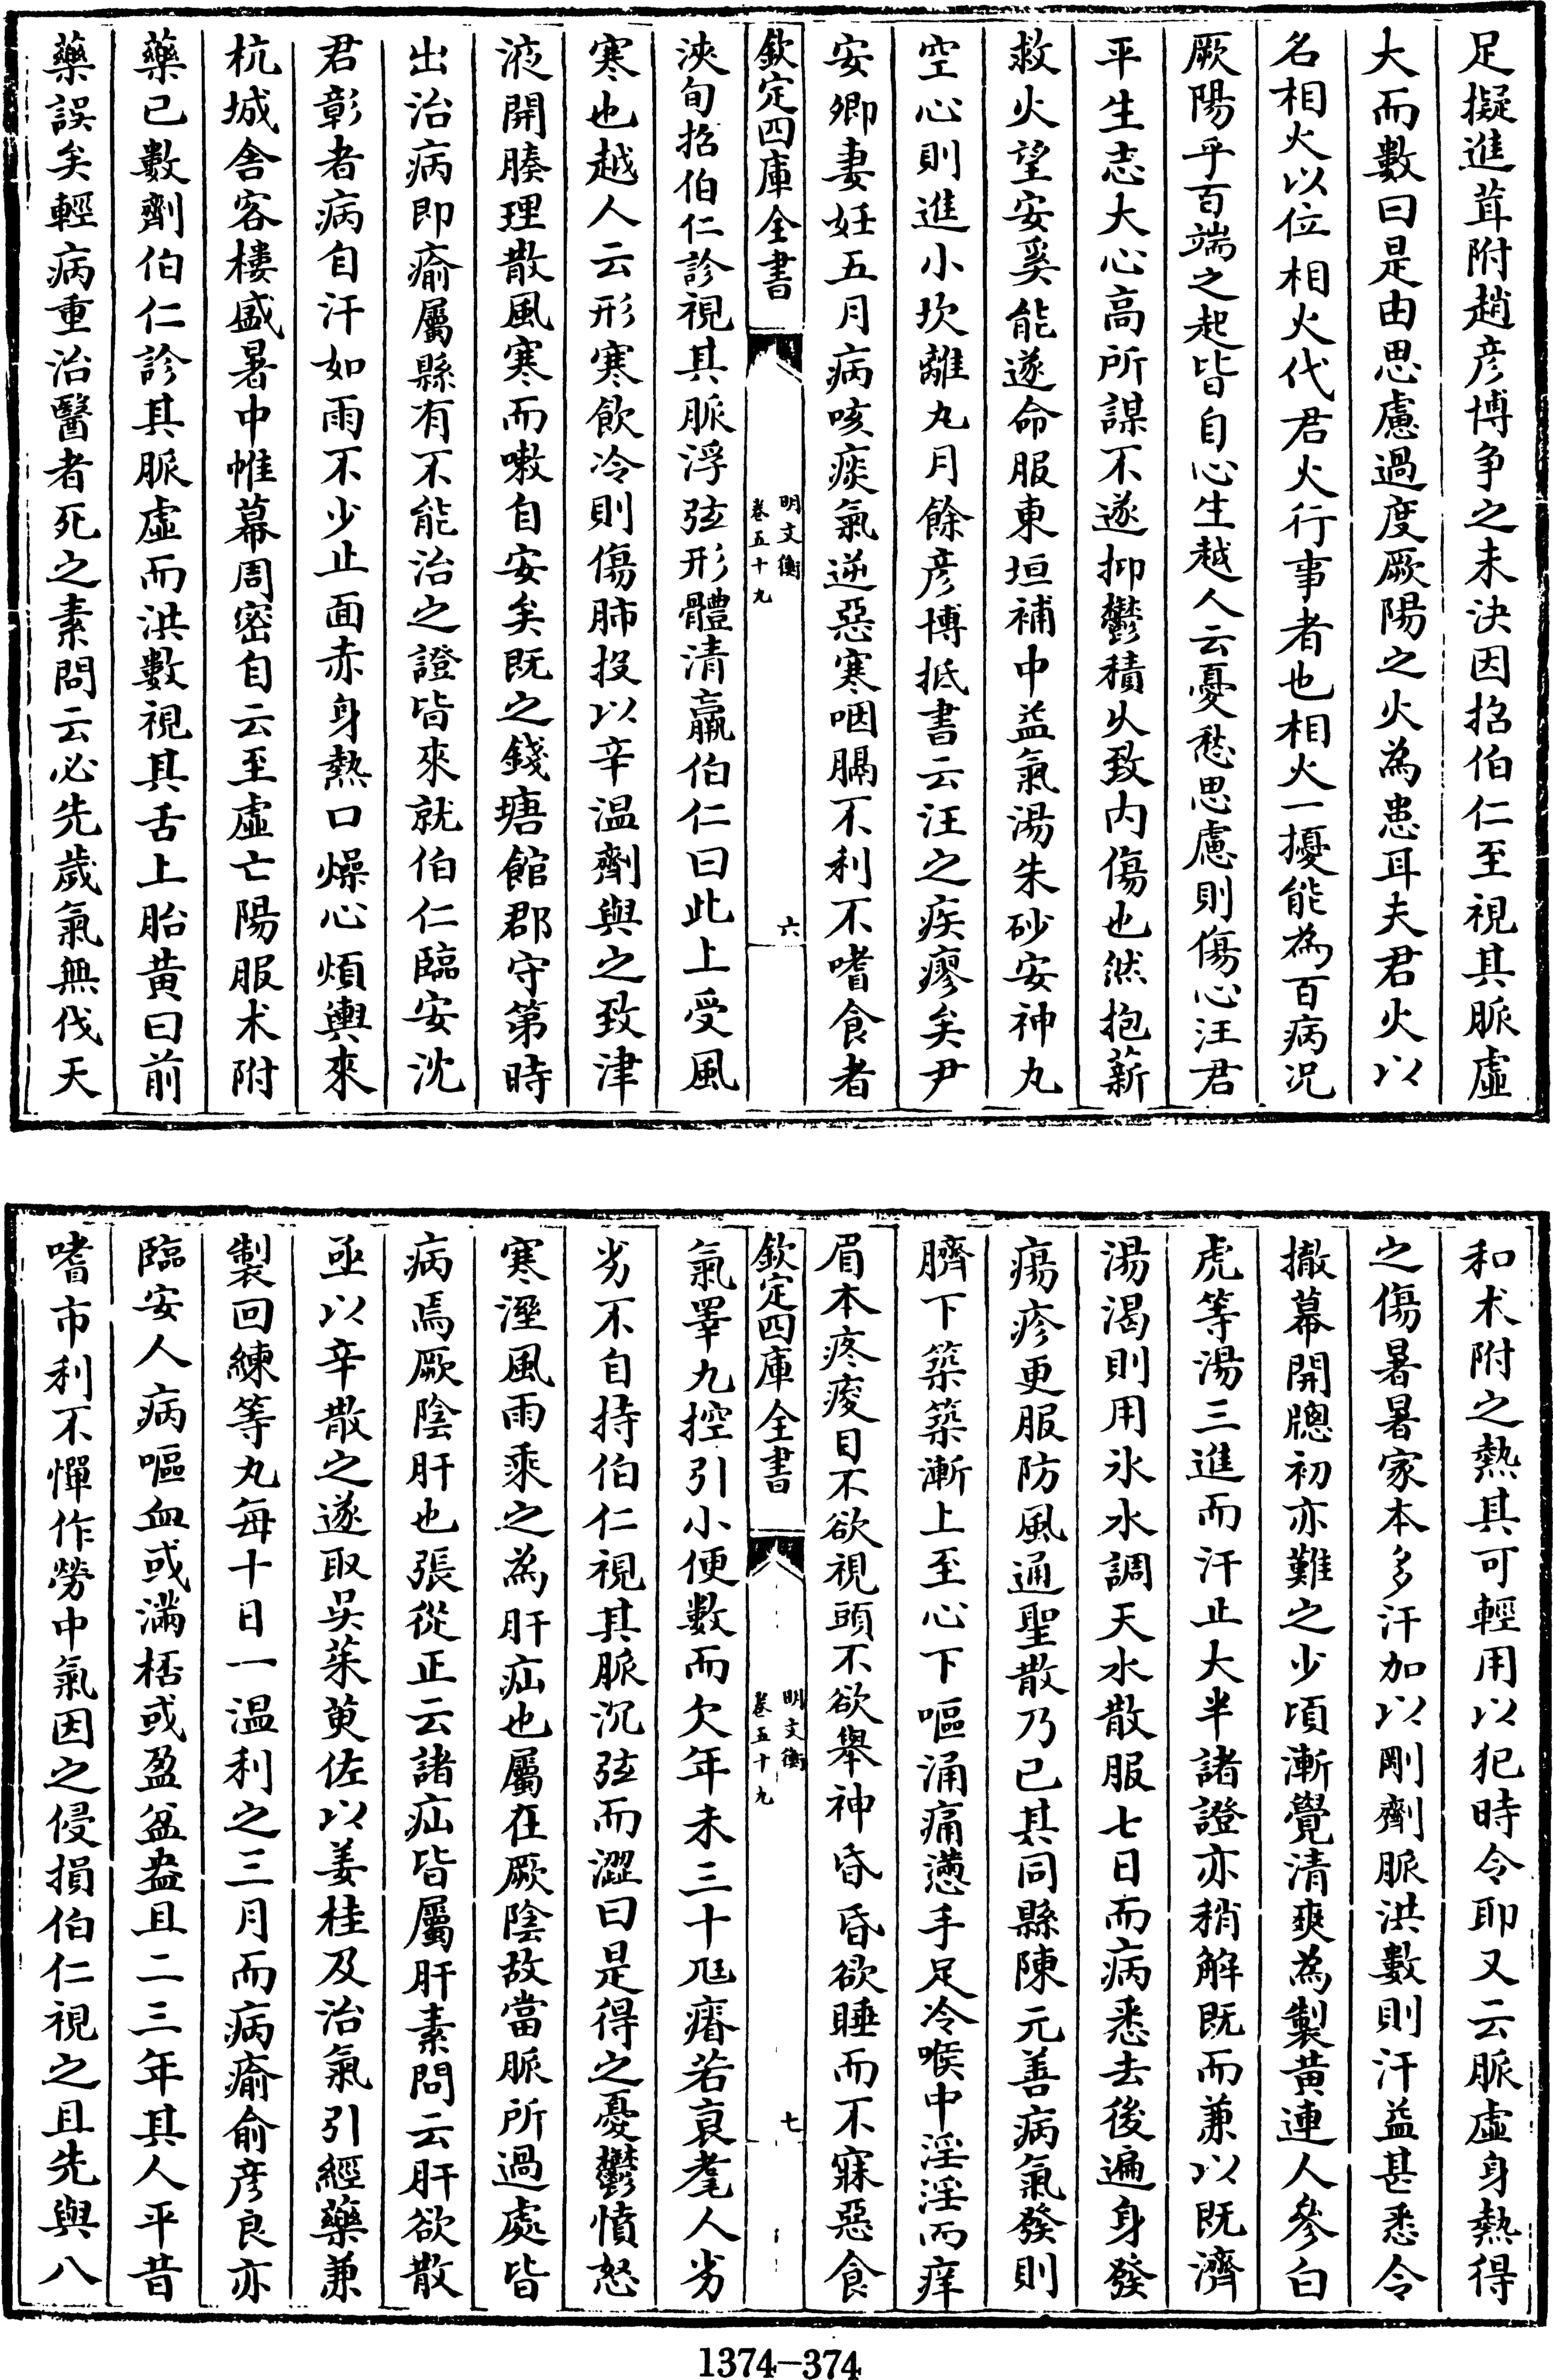 足擬進茸附趙彦博争之未決因招伯仁至視其脈虛
大而數曰是由思慮過度厥陽之火為患耳夫君火以
名相火以位相火代君火行事者也相火一擾能為百病况
厥陽乎百端之起皆自心生越人云憂愁思慮則傷心汪君
平生志大心高所謀不遂抑鬱積火致内傷也然抱薪
救火望安奚能遂命服東垣補中益氣湯朱砂安神丸
空心則進小坎離丸月餘彦博抵書云汪之疾瘳矣尹
安卿妻妊五月病咳痰氣逆惡寒咽膈不利不嗜食者
欽定四庫全書
明文衡
卷五十九
六
浹旬招伯仁診視其脈浮弦形體清羸伯仁曰此上受風
寒也越人云形寒飲冷則傷肺投以辛温劑與之致津
液開腠理散風寒而嗽自安矣既之錢塘館郡守第時
出治病即瘉屬縣有不能治之證皆來就伯仁臨安沈
君彰者病自汗如雨不少止面赤身熱口燥心煩輿來
杭城舍客樓盛暑中帷幕周密自云至虛亡陽服术附
藥已數劑伯仁診其脈虛而洪數視其舌上胎黄曰前
藥誤矣輕病重治醫者死之素問云必先歲氣無伐天
和术附之熱其可輕用以犯時令耶又云脈虛身熱得
之傷暑暑家本多汗加以剛劑脈洪數則汗益甚悉令
撤幕開牕初亦難之少頃漸覺清爽為製黄連人參白
虎等湯三進而汗止大半諸證亦稍解既而兼以既濟
湯渴則用氷水調天水散服七日而病悉去後遍身發
瘍疹更服防風通聖散乃已其同縣陳元善病氣發則
臍下築築漸上至心下下嘔涌痛懣手足冷喉中淫淫而痒
眉本疼痠目不欲視頭不欲舉神昏昏欲睡而不寐惡食
欽定四庫全書
明文衡
卷五十九
七
氣睪丸控引小便數而欠年未三十尫瘠若衰耄人劣
劣不自持伯仁視其脈沉弦而澀曰是得之憂鬱憤怒
寒溼風雨乘之為肝疝也屬在厥陰故當脈所過處皆
病焉厥陰肝也張從正云諸疝皆屬肝素問云肝欲散
亟以辛散之遂取吳茱萸佐以姜桂及治氣引經藥兼
製回練等丸每十日一温利之三月而病瘉俞彦良亦
臨安人病嘔血或滿桮或盈盆盎且二三年其人平昔
嗜市利不憚作勞中氣因之侵損伯仁視之且先與八
1374-374